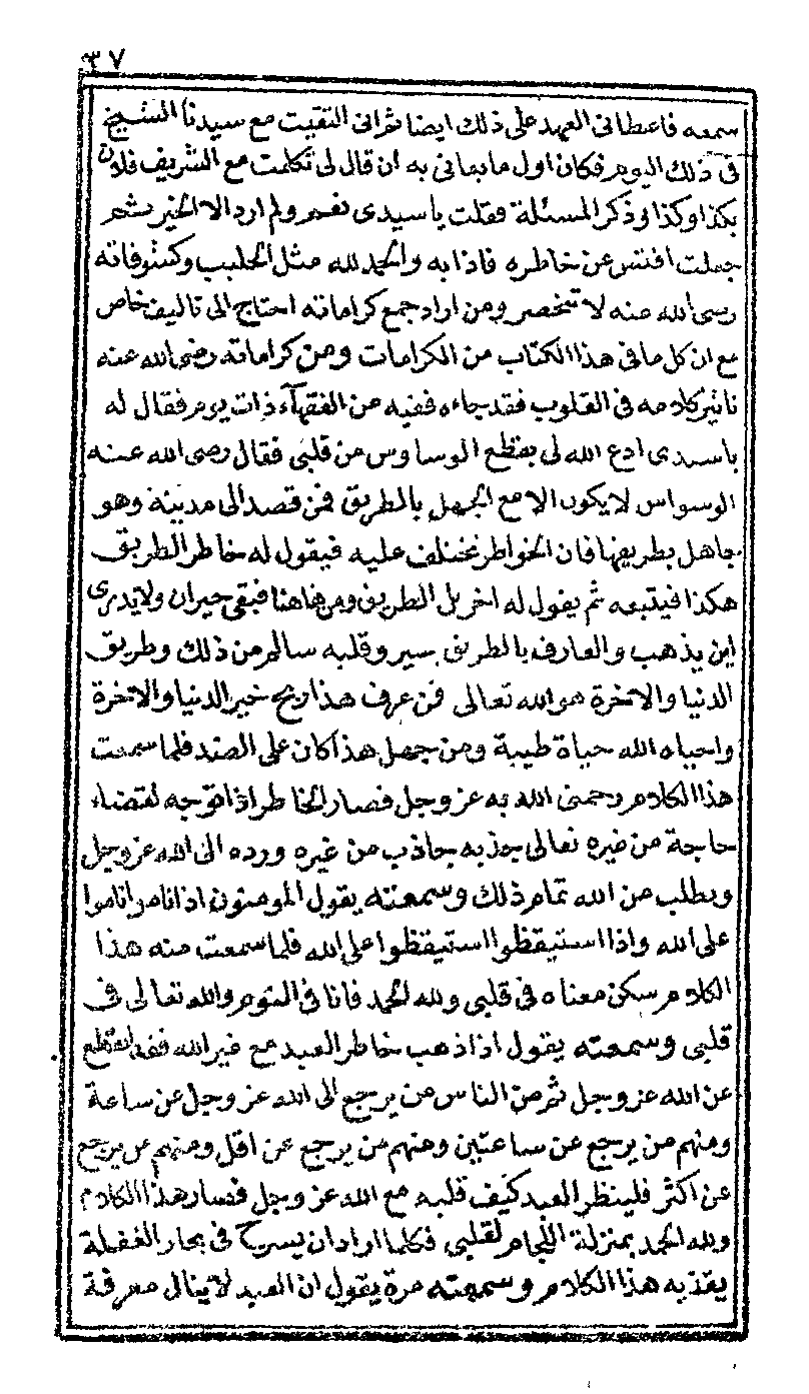 ٣٧
سمعه فاعطانى العهد على ذلك ايضا ثم انى التقيت مع سيدنا الشيخ
فى ذلك اليوم فكان اول ما بدانى به ان قال لى تكلمت مع الشريف فلان
بكذا وكذا وذكر المسئلة فقلت ياسيدى نعم ولم ارد الا الخير ثم
جعلت افتش عن خاطره فاذا به والحمد لله مثل الحليب وكشوفاته
رضى الله عنه لا تنحصر ومن اراد جمع كراماته احتاج الى تاليف خاص
مع ان كل ما فى هذا الكتاب من الكرامات ومن كراماته رضى الله عنه
تاثير كلامه فى القلوب فقد جاءه فقيه من الفقهآء ذات يوم فقال له
ياسيدى ادع الله لى بقطع الوساوس من قلبى فقال رضى الله عنه
الوسواس لا يكون الا مع الجهل بالطريق فمن قصد الى مدينة وهو
جاهل بطريقها فان الخواطر تختلف عليه فيقول له خاطر الطريق
هكذا فيتبعه ثم يقول له اخر بل الطريق ومن هاهنا فبقى حيران ولا يدرى
اين يذهب والعارف بالطريق يسير وقلبه سالم من ذلك وطريق
الدنيا والاخرة هو الله تعالى فمن عرف هذا ربح خير الدنيا والاخرة
واحياه الله حياة طيبة ومن جهل هذا كان على الضد فلما سمعت
هذا الكلام رحمنى الله به عز وجل فصار الخاطر اذا توجه لقضاء
حاجة من غيره تعالى جذبه جاذب من غيره ورده الى الله عز وجل
ويطلب من الله تمام ذلك وسمعته يقول المومنون اذا ناموا ناموا
على الله واذا استيقظوا استيقظوا على الله فلما سمعت منه هذا
الكلام سكن معناه فى قلبى ولله الحمد فانا فى النوم والله تعالى فى
قلبى وسمعته يقول اذا ذهب خاطر العبد مع غير الله فقد انقطع
عن الله عز وجل ثم من الناس من يرجع الى الله عز وجل عن ساعة
ومنهم من يرجع عن ساعتين ومنهم من يرجع عن اقل ومنهم من يرجع
عن اكثر فلينظر العبد كيف قلبه مع الله عز وجل فصار هذا الكلام
ولله الحمد بمنزلة اللجام لقلبى فكلما اراد ان يسرح فى بحار الغفلة
هذا الكلام وسمعته مرة يقول ان العبد لا ينال معرفة